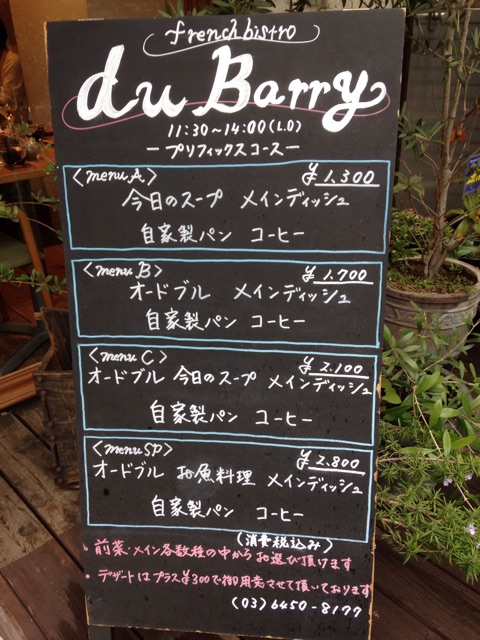 french bistro
du Barry
11:30~14:00(L.O)
ー プリフィックスコース ー
<menu A> ¥1.300
今日のスープ メインディッシュ
自家製パン コーヒー
<menu B> ¥1.700
オードブル メインディッシュ
自家製パン コーヒー
<menu C> ¥2.100
オードブル 今日のスープ メインディッシュ
自家製パン コーヒー
<menu SP> ¥2.800
オードブル お魚料理 メインディッシュ
自家製パン コーヒー
(消費税込み)
・前菜・メイン各数種の中からお選び頂けます
・デザートはプラス¥300で御用意させて頂いております
(03)6450-8177